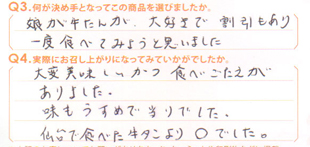 Q3.何が決め手となってこの商品を選びましたか。
娘が牛たんが、大好きで 割引もあり
一度食べてみようと思いました
Q4.実際にお召し上がりになってみていかがでしたか。
大変美味しいかつ 食べごたえが
ありました。
味もうすめで当りでした。
仙台で食べた牛タンより ○でした。